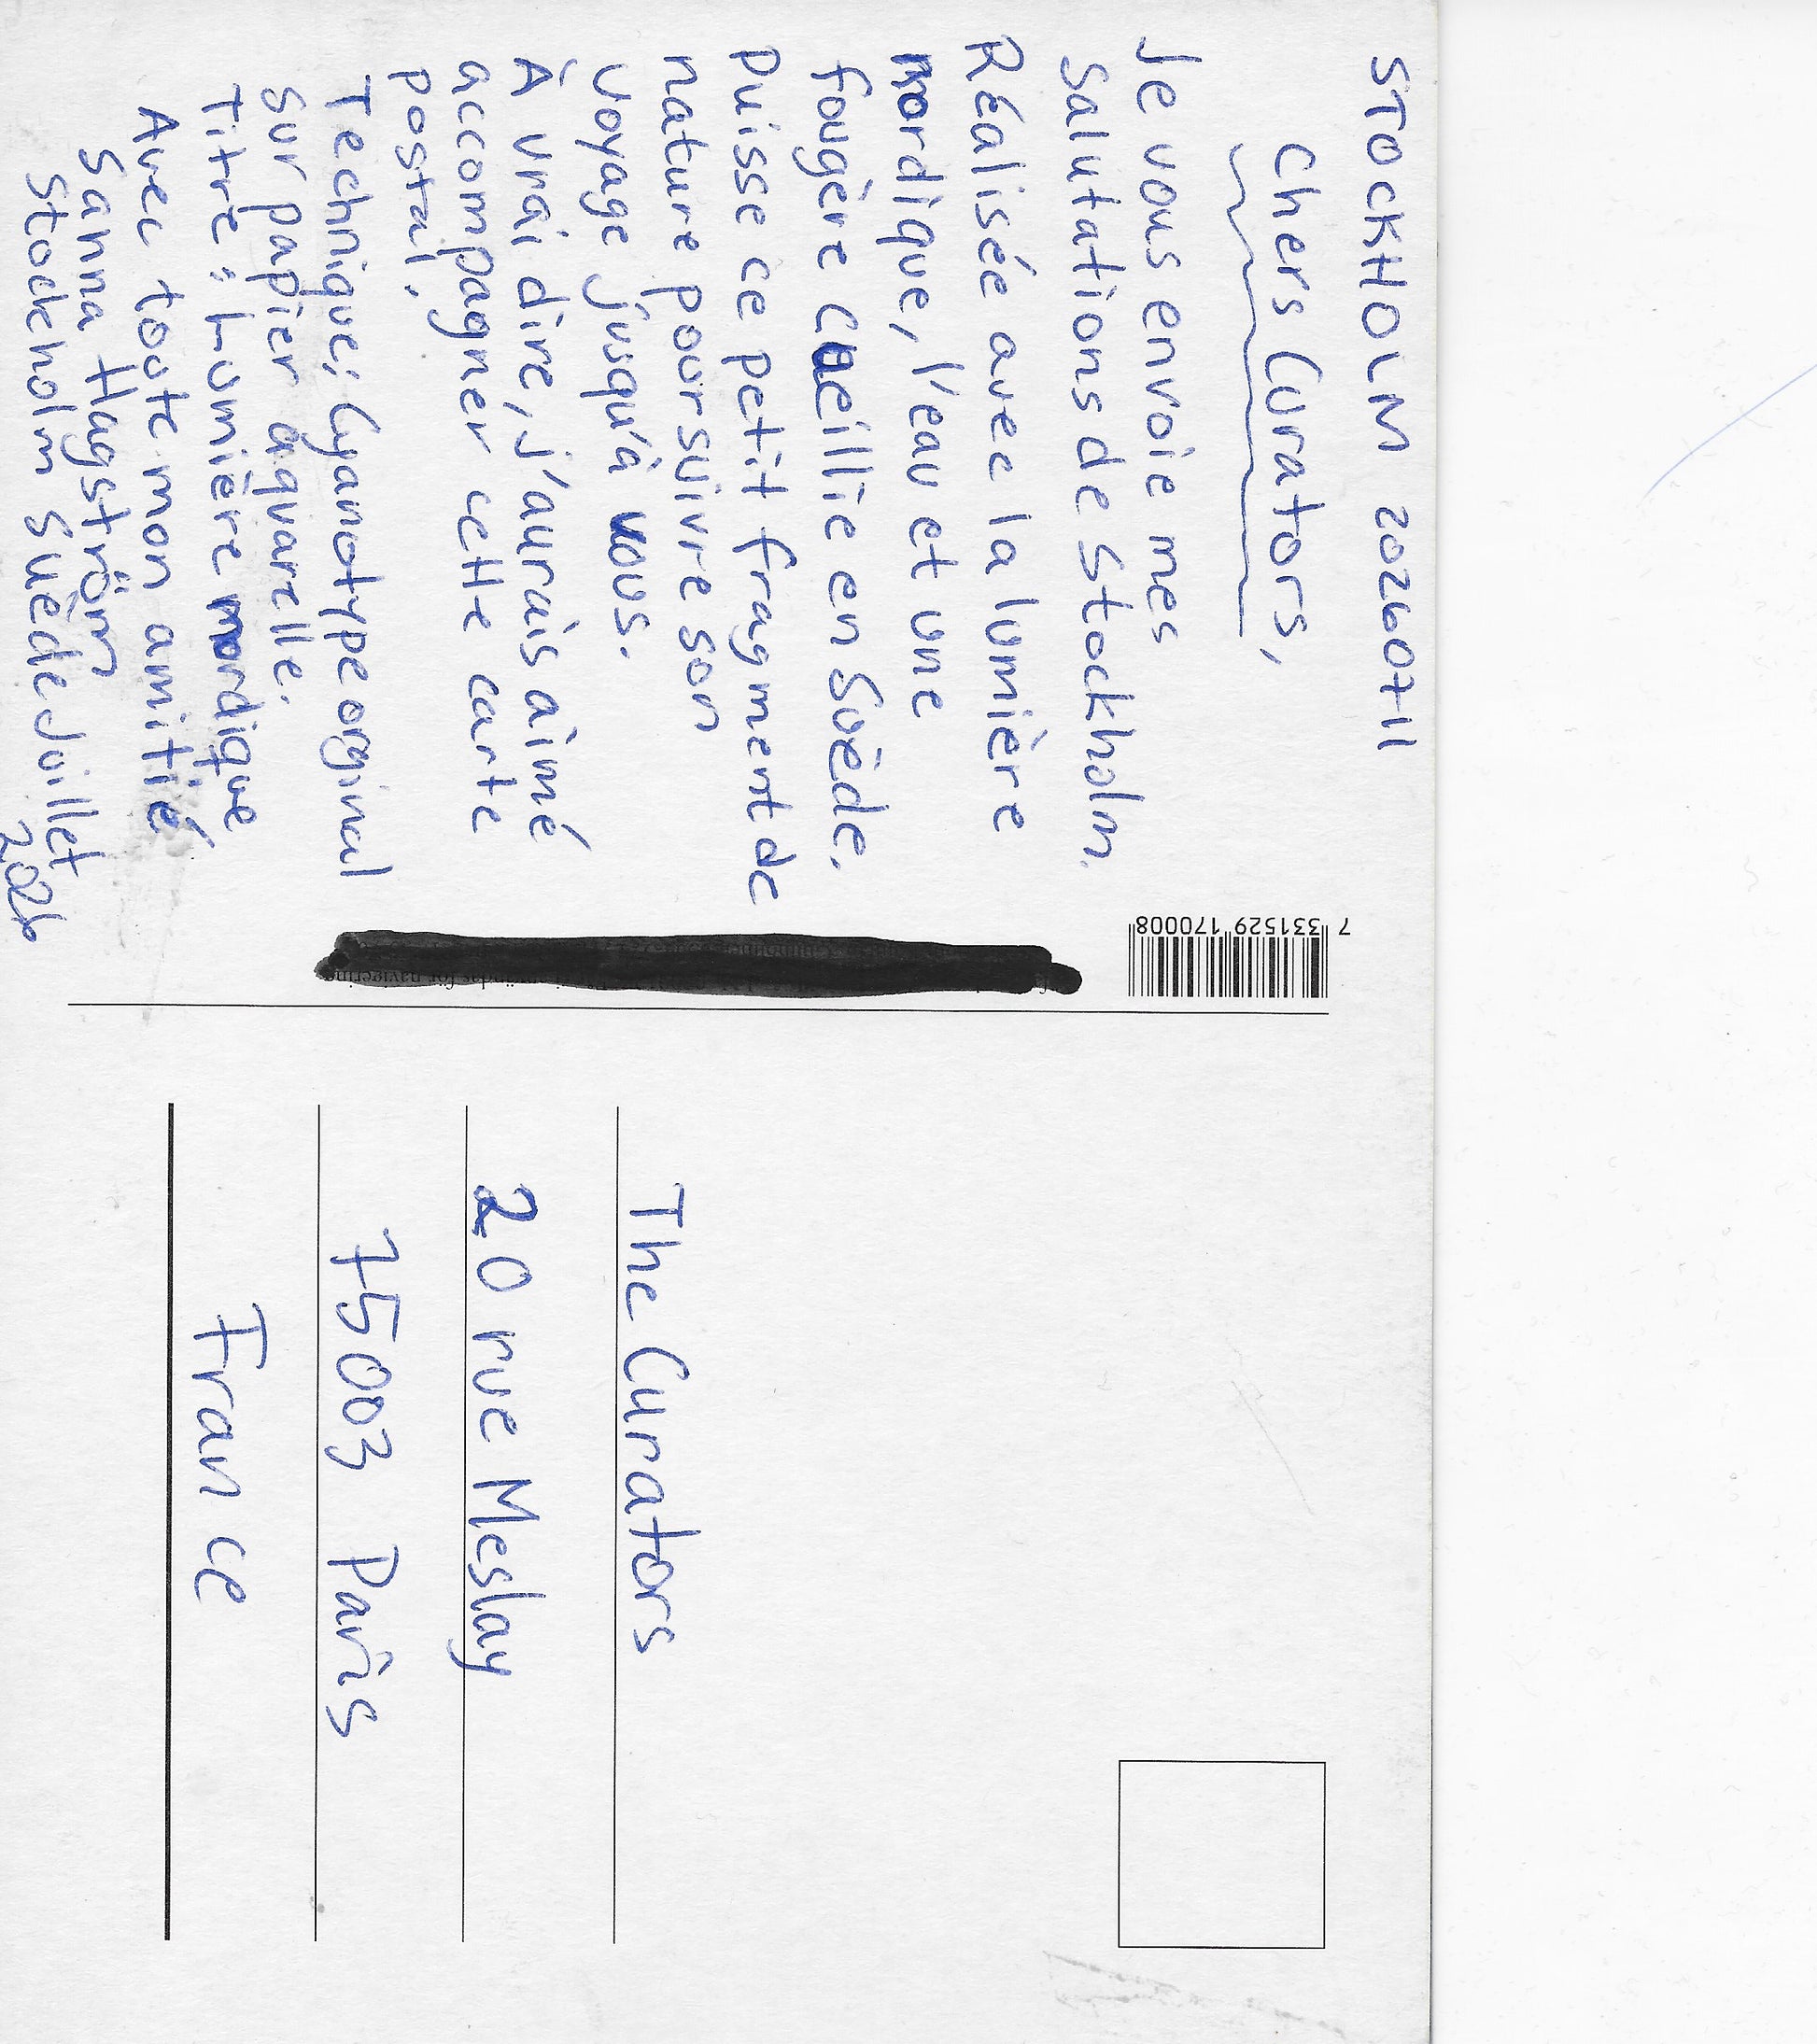 STOCKHOLM 20260711
Chers Curators,
Je vous envoie mes
salutations de Stockholm.
Réalisée avec la lumière
nordique, l'eau et une
fougère cueillie en Suède.
Puisse ce petit fragment de
nature poursuivre son
voyage jusqu'à vous.
À vrai dire, j'aurais aimé
accompagner cette carte
postal.
Technique: Cyanotype orginal
sur papier aquarelle.
Titre: Lumière nordique
Avec toute mon amitié
Sanna Hagström
Stockholm Suède Juillet
2026
7 331529 170008
The Curators
20 rue Meslay
75003 Paris
France